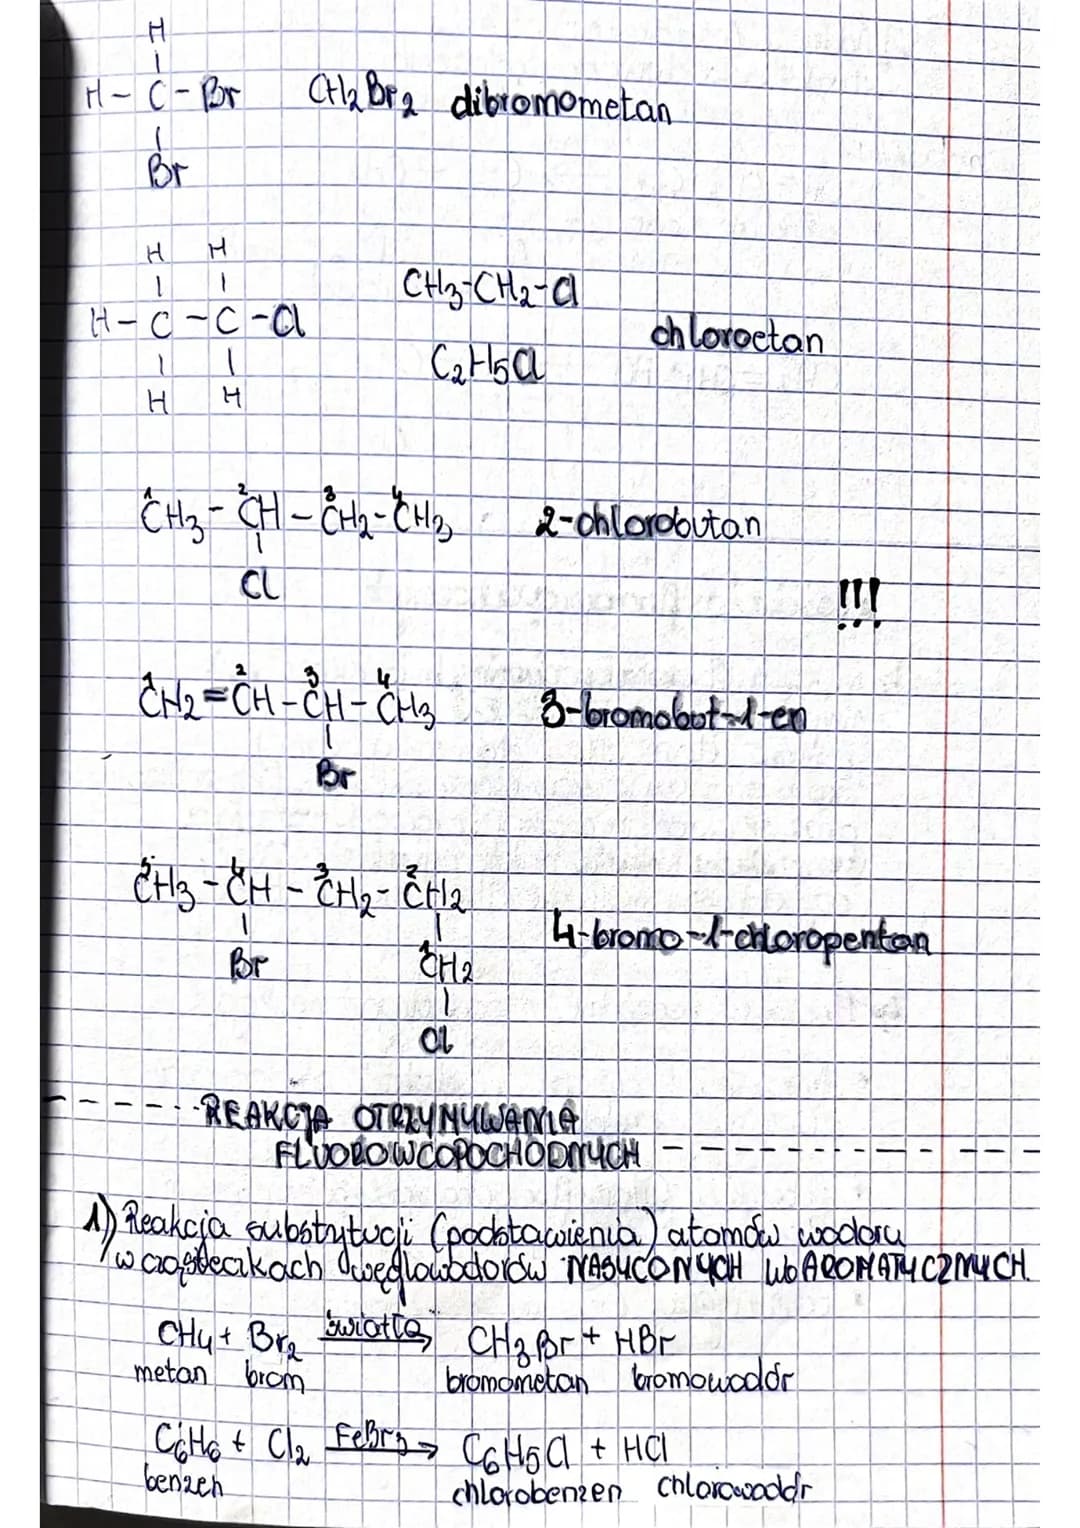 H
|
H - C - Br CH2Br2 dibromometan
|
Br
H H
| |
H - C - C - Cl CH3-CH2-Cl
| | C2H5Cl chloroetan
H H
1 2 3 4
CH3 - CH - CH2 - CH3 2-chlorobutan
|
Cl
!!!
1 2 3 4
CH2 = CH - CH - CH3 3-bromobut-1-en
|
Br
5 4 3 2
CH3 - CH - CH2 - CH2
| | 4-bromo-1-chloropentan
Br 1CH2
|
Cl
REAKCJA OTRZYMYWANIA
FLUOROWCOPOCHODNYCH
1) Reakcja substytucji (podstawienia) atomów wodoru
w cząsteczkach węglowodorów NASYCONYCH lub AROMATYCZNYCH.
CH4 + Br2 światło → CH3Br + HBr
metan brom bromometan bromowodór
C6H6 + Cl2 FeBr3 → C6H5Cl + HCl
benzen chlorobenzen chlorowodór